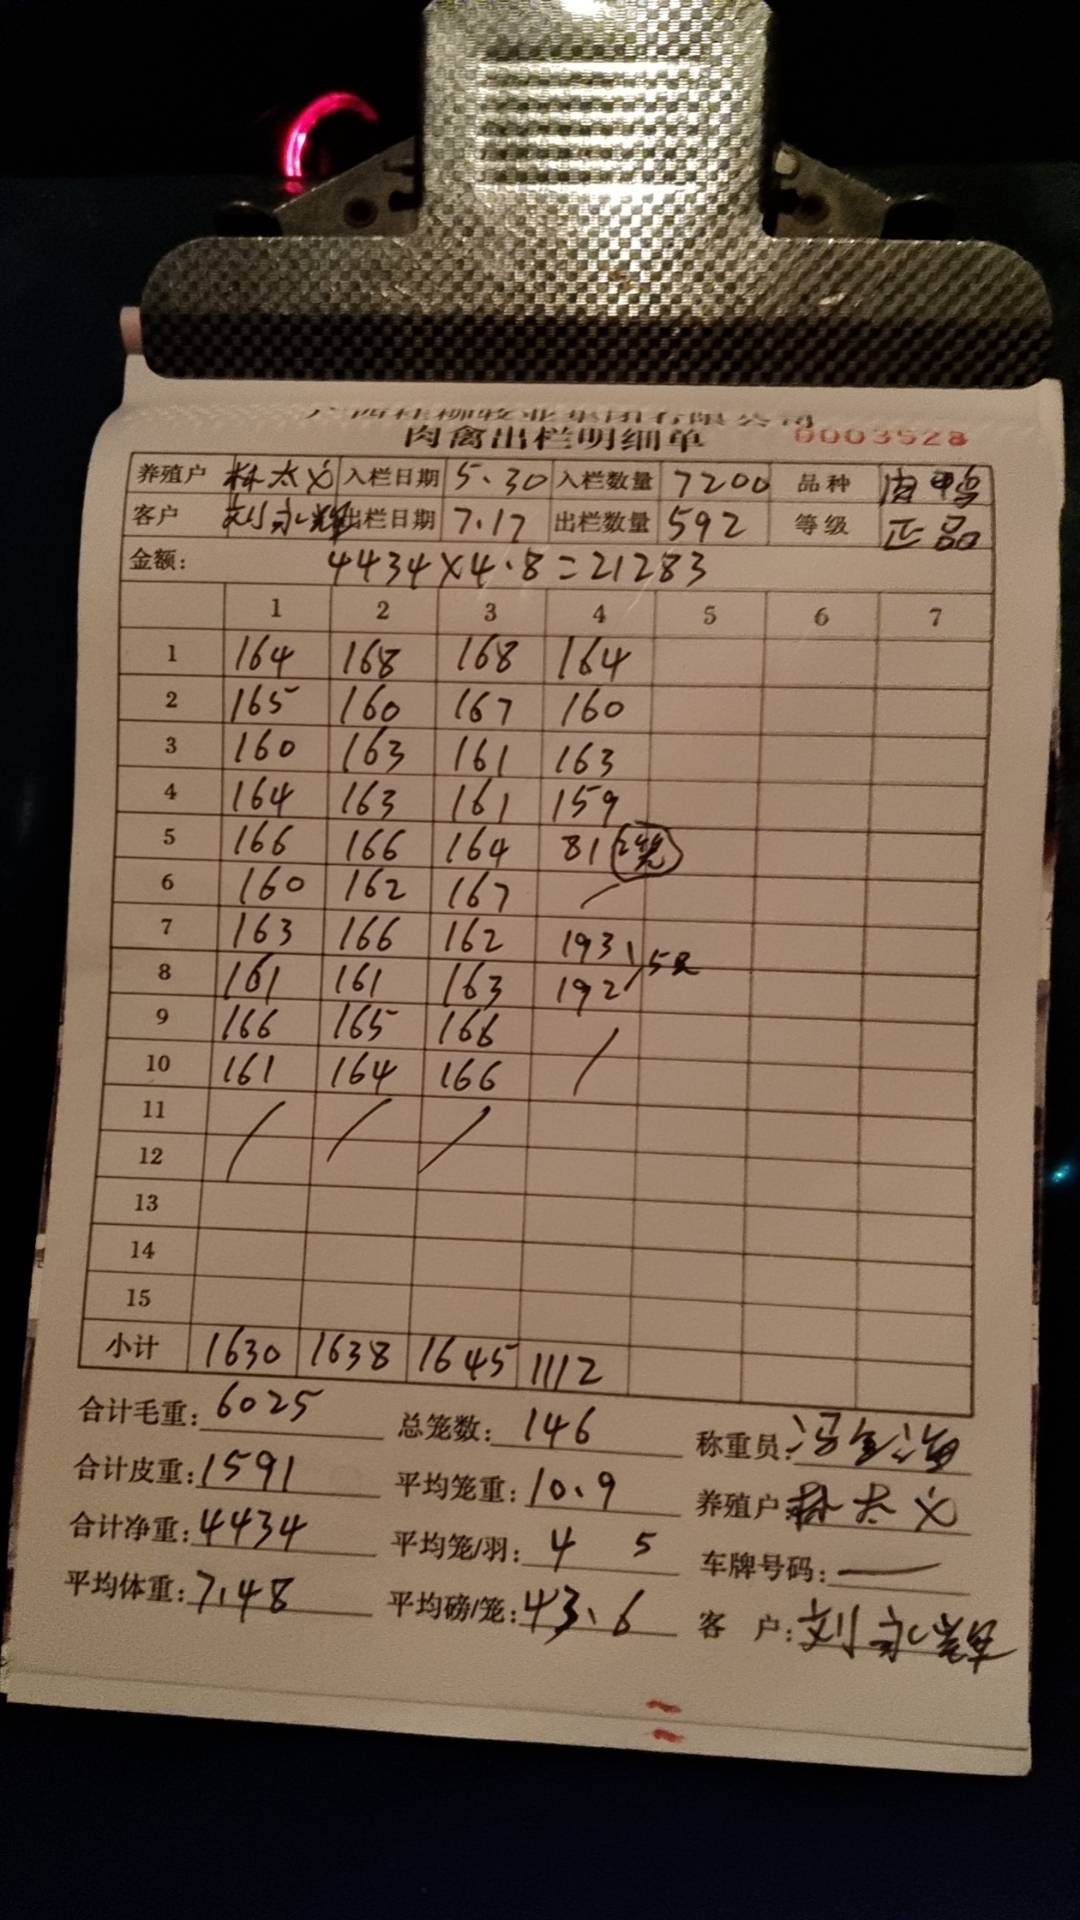 广西桂柳牧业集团有限公司
肉禽出栏明细单 0003528
养殖户 林太义 入栏日期 5.30 入栏数量 7200 品种 肉鸭
客户 刘永辉 出栏日期 7.17 出栏数量 592 等级 正品
金额: 4434×4.8=21283
1 2 3 4 5 6 7
1 164 168 168 164
2 165 160 167 160
3 160 163 161 163
4 164 163 161 159
5 166 166 164 81 2笼
6 160 162 167
7 163 166 162 193
8 161 161 163 192 5只
9 166 165 166
10 161 164 166
11
12
13
14
15
小计 1630 1638 1645 1112
合计毛重: 6025 总笼数: 146 称重员:
合计皮重: 1591 平均笼重: 10.9 养殖户: 林太义
合计净重: 4434 平均笼/羽: 4 5 车牌号码: —
平均体重: 7.48 平均磅/笼: 43.6 客户: 刘永辉